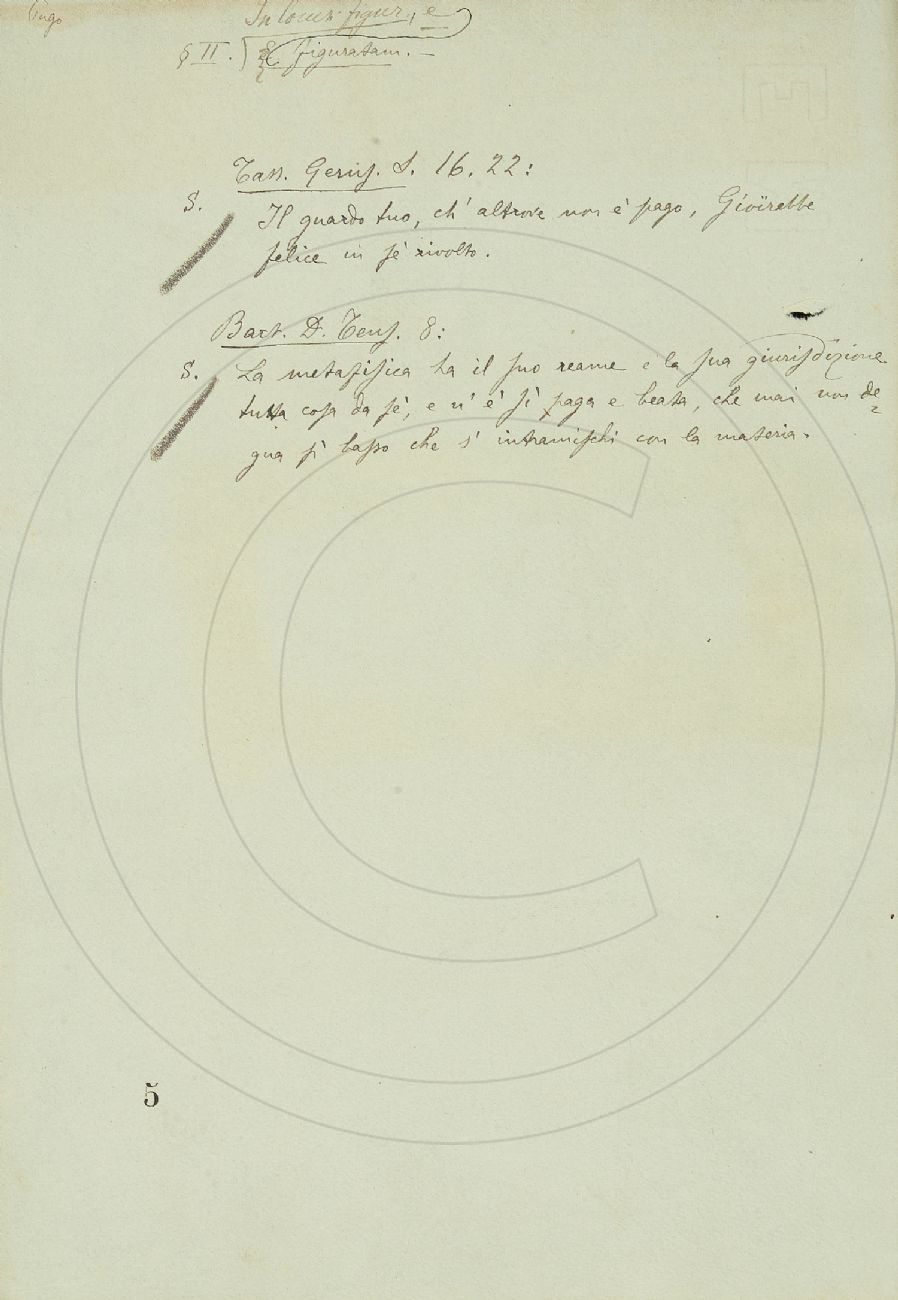 Pago
In locuz. figur., e
§ II. E figuratam. —
Tass. Gerus. S. 16. 22:
S. Il guardo tuo, ch' altrove non è pago, Gioïrebbe
felice in sè rivolto.
Bart. D. Tens. 8:
S. La metafisica ha il suo reame e la sua giurisdizione
tutta cosa da sè, e v' è sì paga e beata, che mai non de=
gna sì basso che s' intramischi con la materia.
5